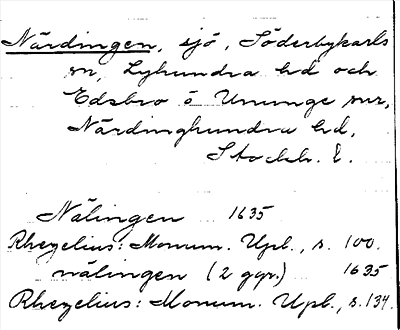 Närdingen, sjö, Söderbykarls
sn, Lyhundra hd och
Edsbro o Ununge snr,
Närdinghundra hd,
Stockh. l.
Nälingen 1635
Rhezelius: Monum. Upl., s. 100.
nälingen (2 ggr.) 1635
Rhezelius: Monum. Upl., s. 134.